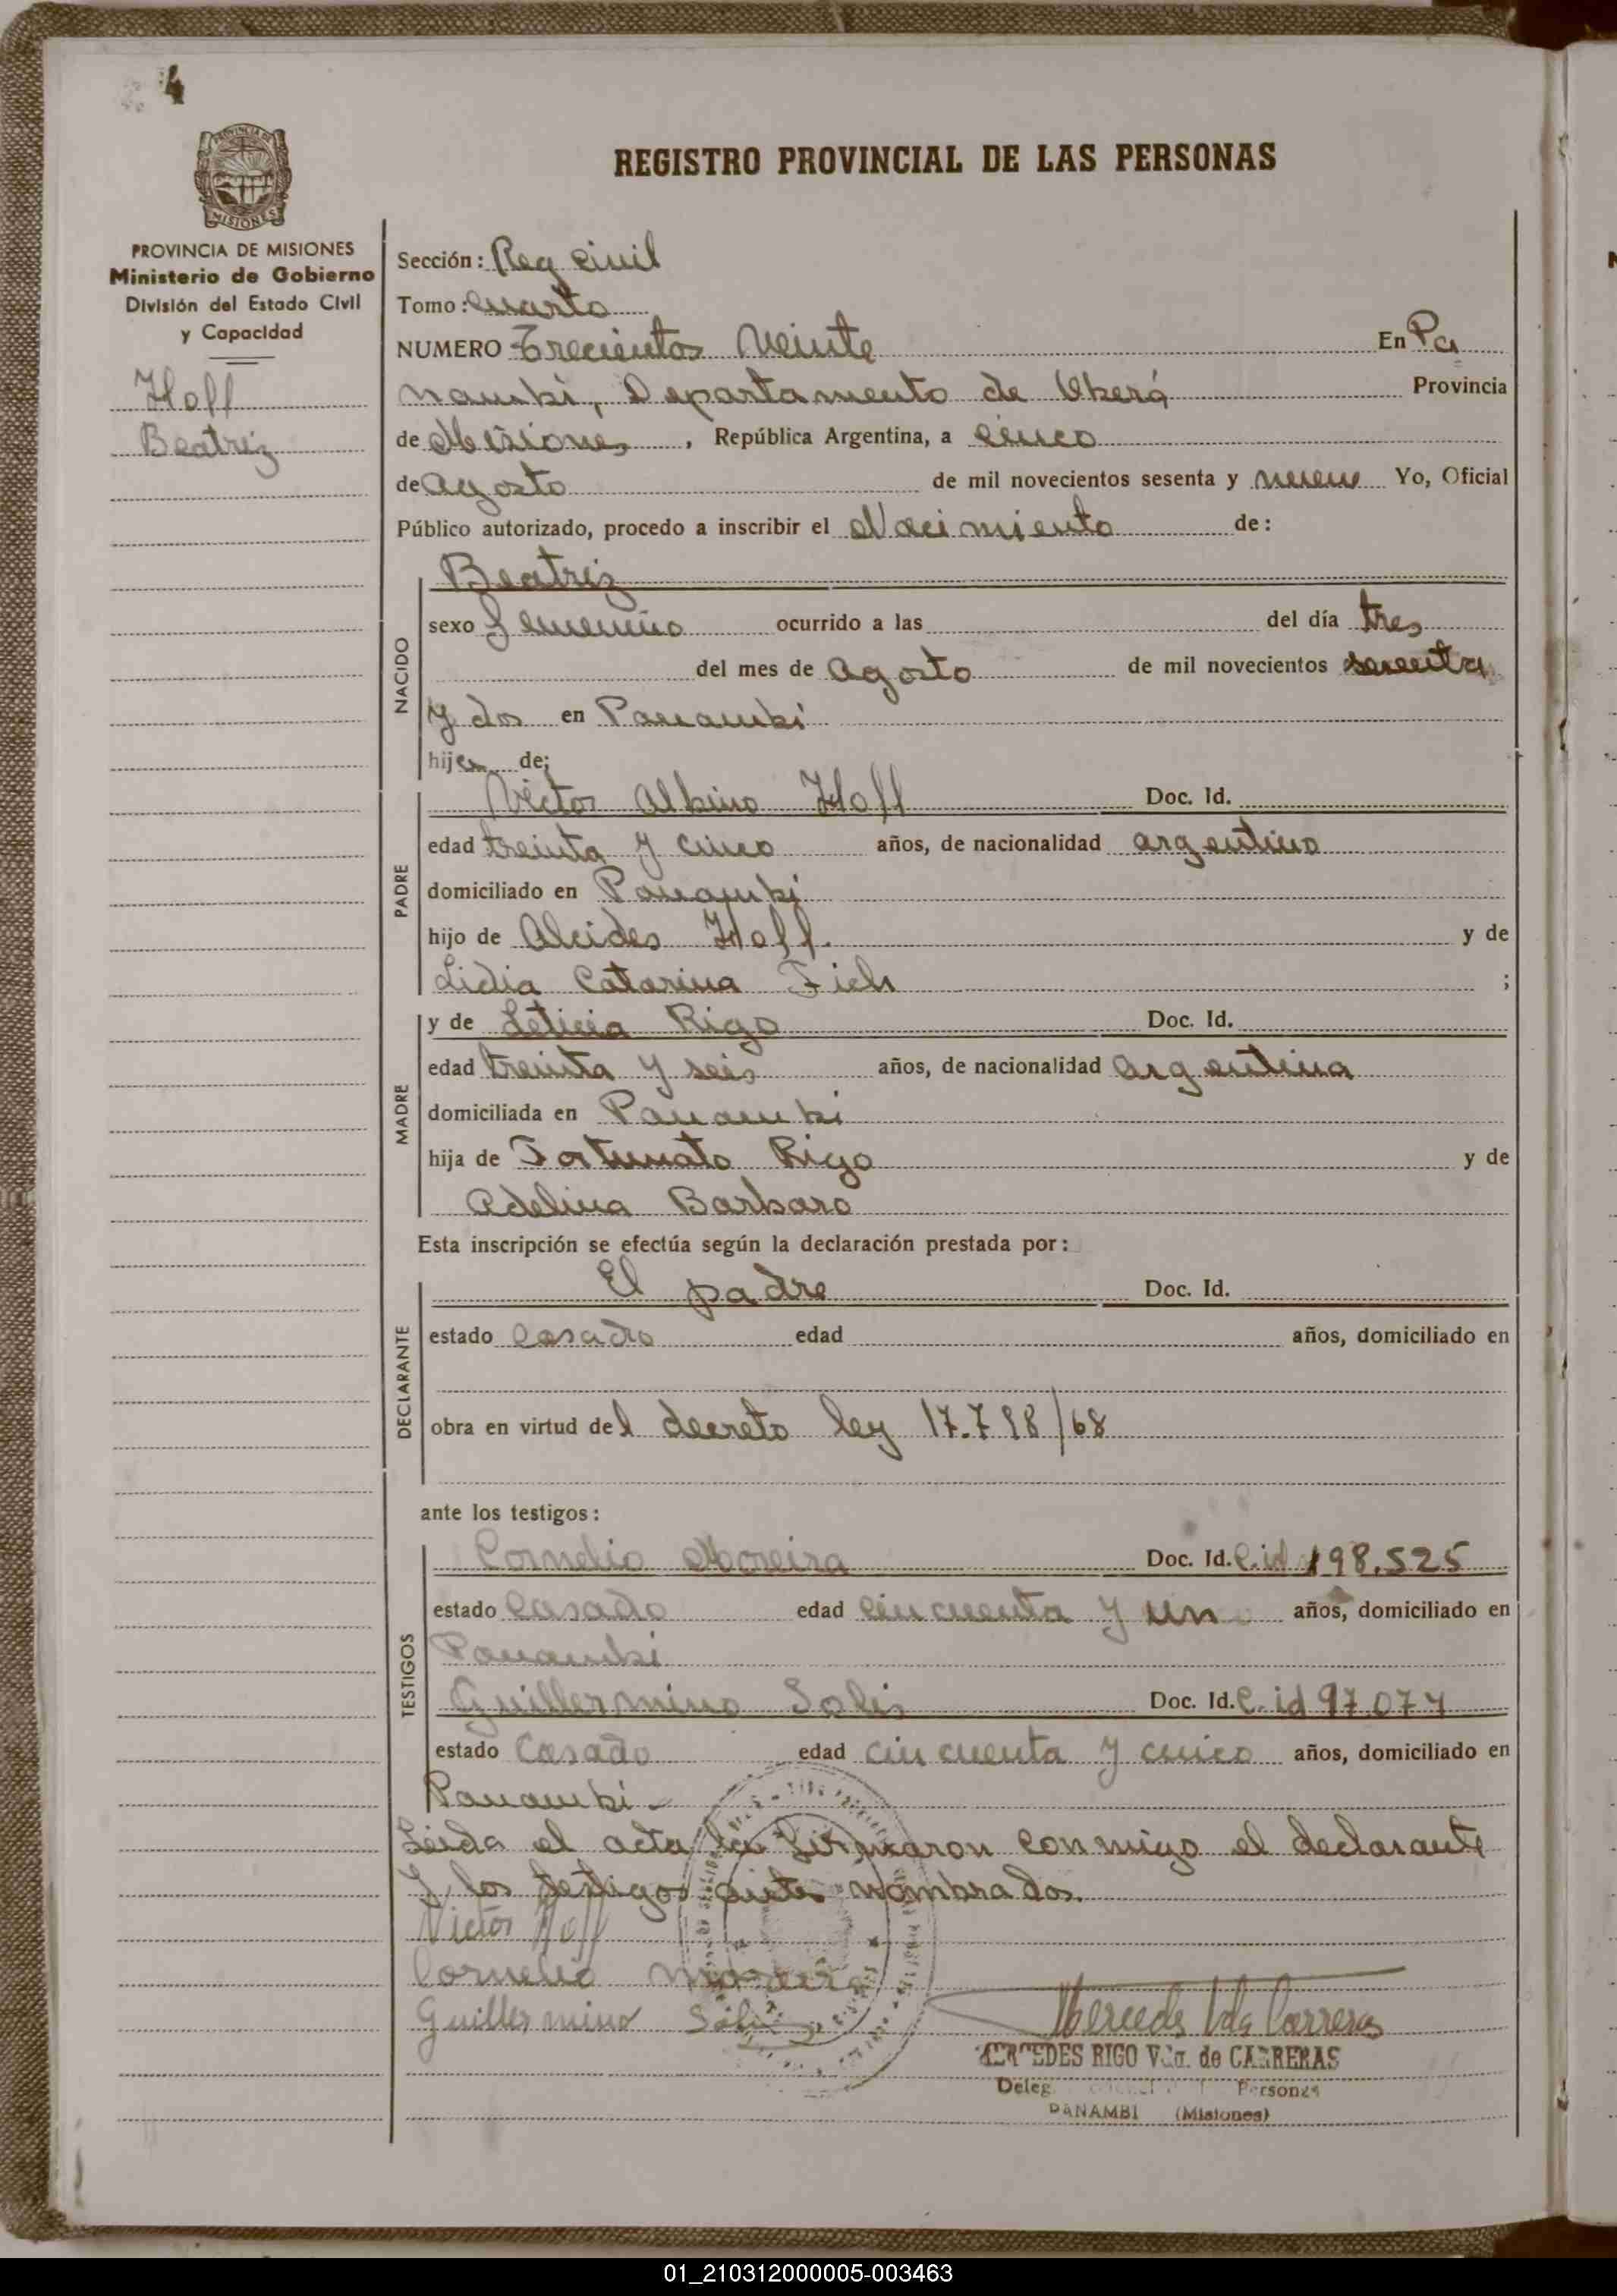 4
PROVINCIA DE MISIONES
Ministerio de Gobierno
División del Estado Civil
y Capacidad
Hoff
Beatriz
REGISTRO PROVINCIAL DE LAS PERSONAS
Sección: Reg civil
Tomo: cuarto
NUMERO Trecientos Veinte En Pa
nambi, Departamento de Oberá Provincia
de Misiones, República Argentina, a cinco
de Agosto de mil novecientos sesenta y nueve Yo, Oficial
Público autorizado, procedo a inscribir el Nacimiento de:
NACIDO
Beatriz
sexo Femenino ocurrido a las del día tres
del mes de Agosto de mil novecientos sesenta
y dos en Panambi
hija de;
PADRE
Victor Albino Hoff Doc. Id.
edad treinta y cinco años, de nacionalidad argentino
domiciliado en Panambi
hijo de Alcides Hoff. y de
Lidia Catarina Fich ;
MADRE
y de Leticia Rigo Doc. Id.
edad treinta y seis años, de nacionalidad Argentina
domiciliada en Panambi
hija de Fortunato Rigo y de
Adelina Barbaro
Esta inscripción se efectúa según la declaración prestada por:
DECLARANTE
El padre Doc. Id.
estado Casado edad años, domiciliado en
obra en virtud del decreto ley 17.798/68
ante los testigos:
TESTIGOS
Cornelio Moreira Doc. Id. C. id 198.525
estado Casado edad cincuenta y un años, domiciliado en
Panambi
Guillermino Solis Doc. Id. C. id 97.077
estado Casado edad cincuenta y cinco años, domiciliado en
Panambi
Leida el acta la firmaron conmigo el declarante
y los testigos antes nombrados.
Victor Hoff
Cornelio Moreira
Guillermino Solis
Mercedes Vda Carreras
MERCEDES RIGO Vda. de CARRERAS
Deleg Personas
PANAMBI (Misiones)
01_210312000005-003463